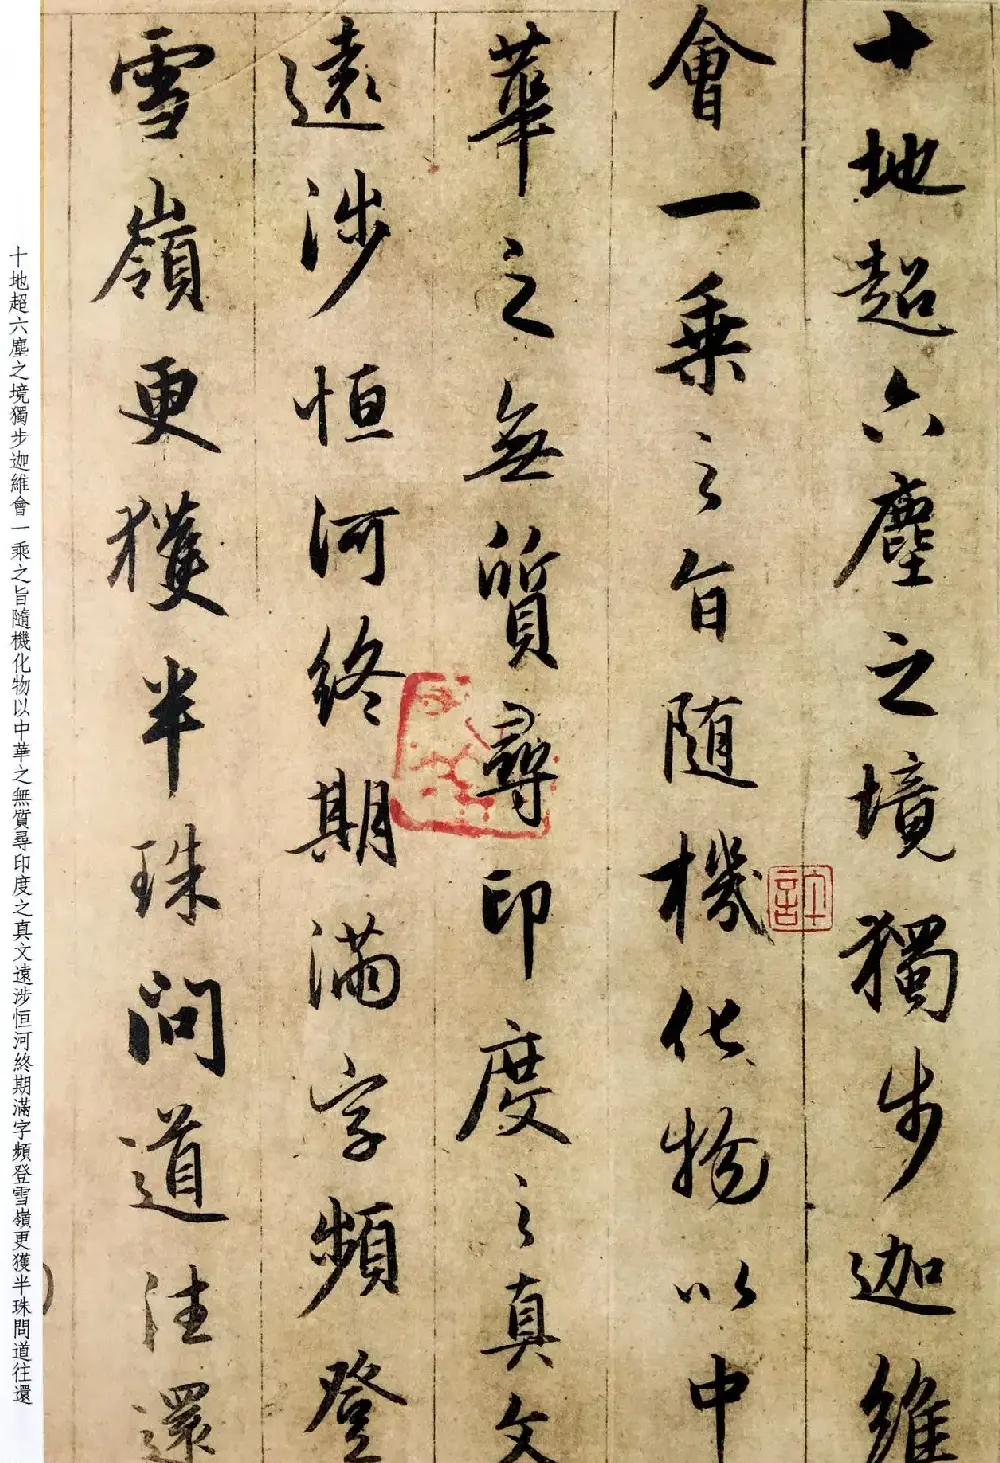 十地超六塵之境獨步迦維
會一乗之旨随機化物以中
華之無質尋印度之真文
遠涉恒河終期滿字頻登
雪嶺更獲半珠問道往還
十地超六塵之境獨步迦維會一乘之旨隨機化物以中華之無質尋印度之真文遠涉恒河終期滿字頻登雪嶺更獲半珠問道往還